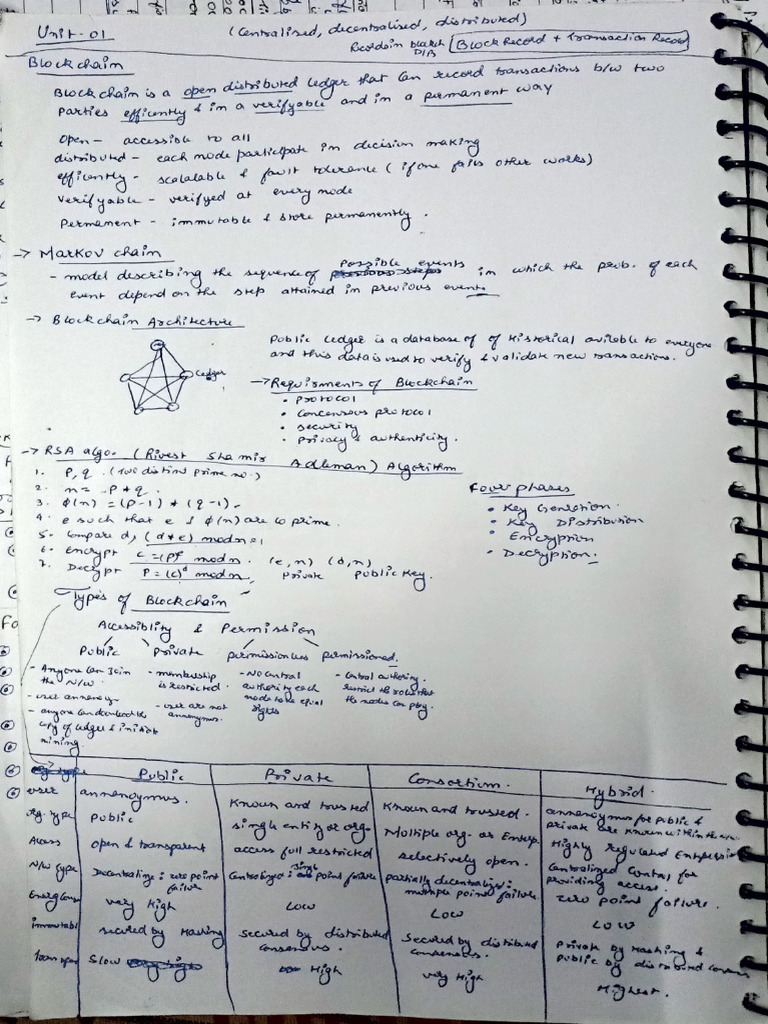 Unit-01
(Centralised, decentralised, distributed)
D/B [Block Record + Transaction Record]
Blockchain
Blockchain is a open distributed ledger that can record transactions b/w two
parties efficently & in a verifyable and in a permanent way
Open - accessible to all
distributed - each node participate in decision making
efficently - scalalable & fault tolerance (if one fails other works)
Verifyable - verifyed at every node
Permanent - immutable & store permanently.
→ Markov chain
- model describing the sequence of possible events in which the prob. of each
event depend on the step attained in previous events
→ Blockchain Architecture
Ledger
Public Ledger is a database of of Historical avilable to everyone
and this data is used to verify & validate new transactions.
→ Requirments of Blockchain
• Protocol
• Concensous protocol
• Security
• Privacy & authenticity.
→ RSA algo. (Rivest Shamir Adleman) Algorithm
1. P, q. (two distint prime no.)
2. n = P * q.
3. ϕ(n) = (P-1) * (q-1).
4. e such that e & ϕ(n) are co prime.
5. Compare d, (d*e) mod n = 1
6. Encrypt C = (P)^e mod n. (e, n) (d, n)
7. Decrypt P = (C)^d mod n, Private Public Key.
Four phases
• Key Genration.
• Key Distribution
• Encryption
• Decryption.
Types of Blockchain
Accessiblity & Permission
Public Private permissionless permissioned.
- Anyone can Join the N/W.
- user annonymo.
- anyone can download the copy of ledger & initiate mining.
- membership is restricted.
- user are not annonymus.
- No Central authority each node to be equal rights
- Central authority. restrict the roles that the nodes can play.
Public Private Consortium. Hybrid.
user annenoymus. Known and trusted Known and trusted. annenoymus for public & private are known within the
Org. type Public single entity or org. Multiple org. or Enterp. Highly regulated Enterprises
Access open & transparent access full restricted selectively open. Centralized Control for providing access.
N/W type Decentralize: zero point failure Centralized: single point failure partially decentralized: multiple point failure zero point failure.
Energy Consu very High Low Low Low
immutabl secured by Hashing Secured by distributed consensous. Secured by distributed consensous. Private by Hashing & public by distributed consensus
Slow High very High Highest.